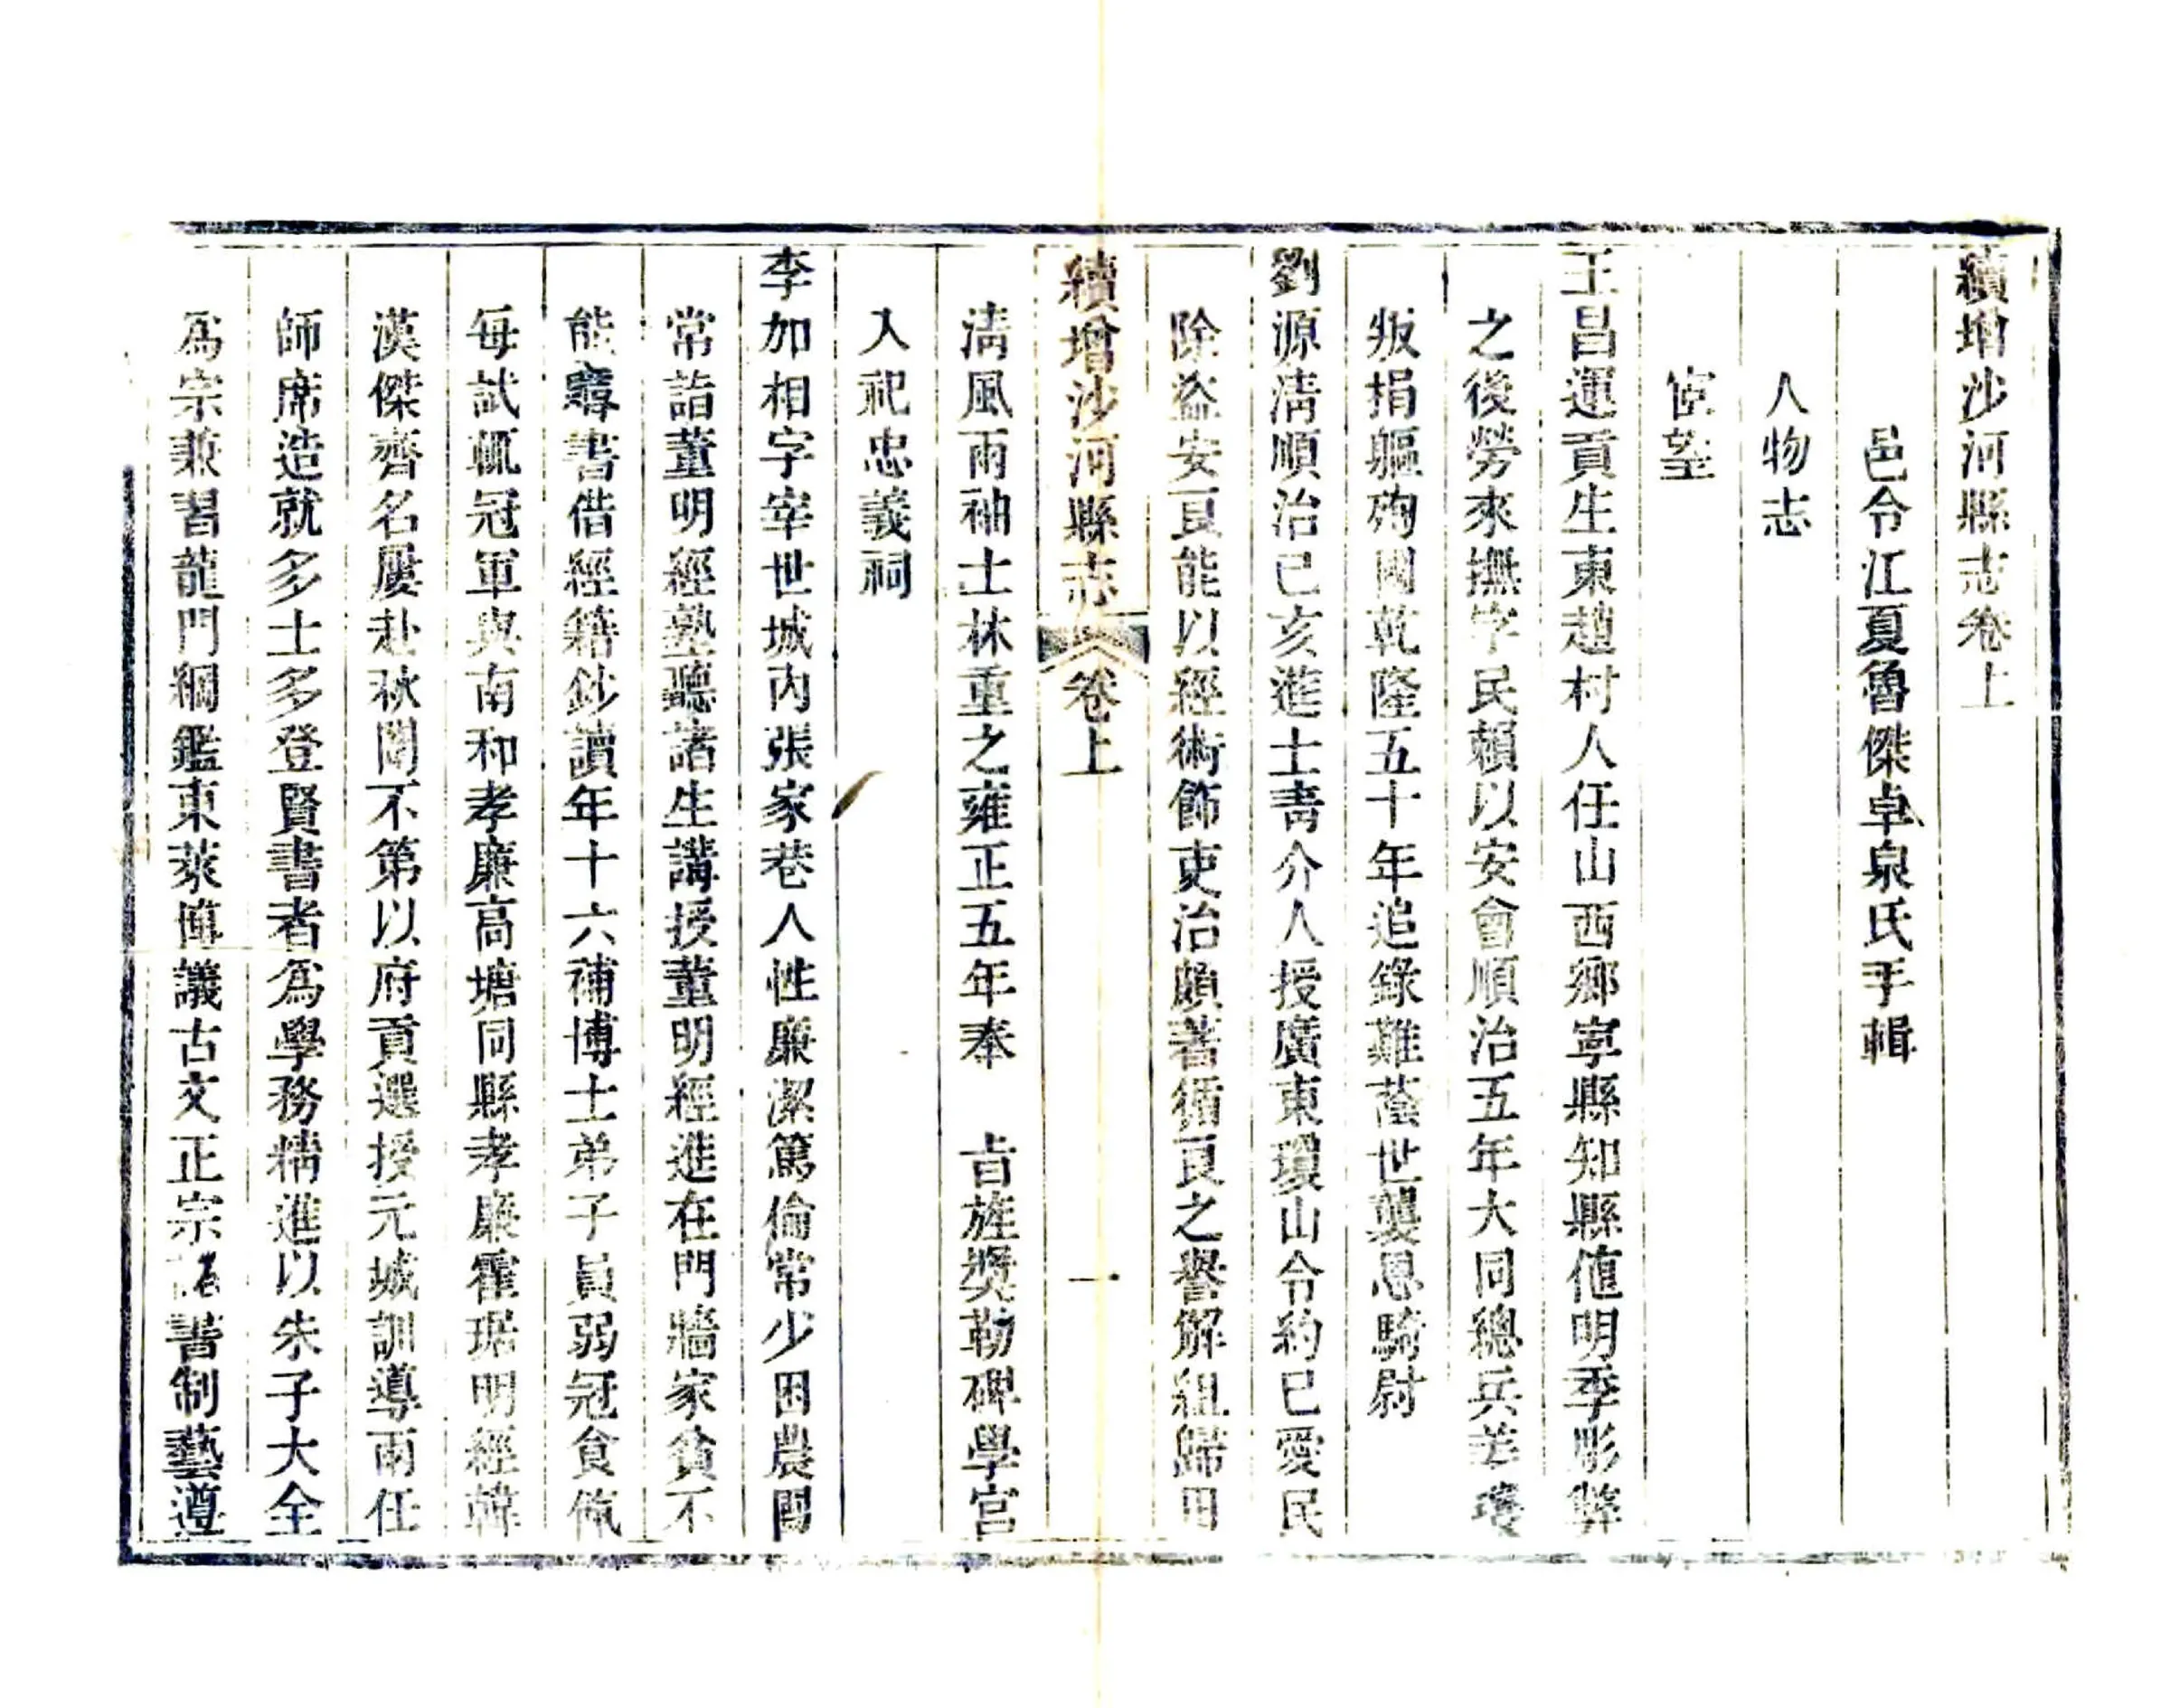 續增沙河縣志卷上
邑令江夏魯傑卓泉氏手輯
人物志
宦望
王昌運貢生東趙村人任山西鄉寧縣知縣值明季彫弊
之後勞來撫字民賴以安會順治五年大同總兵姜瓖
叛捐軀殉國乾隆五十年追錄難蔭世襲恩騎尉
劉源清順治己亥進士靑介人授廣東瓊山令約已愛民
除盜安良能以經術飾吏治頗著循良之譽解組歸田
續增沙河縣志 卷上 一
淸風兩袖士林重之雍正五年奉 旨旌獎勒碑學宮
入祀忠義祠
李加相字宰世城內張家巷人性廉潔篤倫常少困農間
常詣董明經塾聽諸生講授董明經進在門牆家貧不
能購書借經籍鈔讀年十六補博士弟子員弱冠食餼
每試輒冠軍與南和孝廉高塘同縣孝廉霍琚明經韓
漢傑齊名屢赴秋闈不第以府貢選授元城訓導兩任
師席造就多士多登賢書者為學務精進以朱子大全
爲宗兼習龍門綱鑑東萊博議古文正宗 書制藝遵